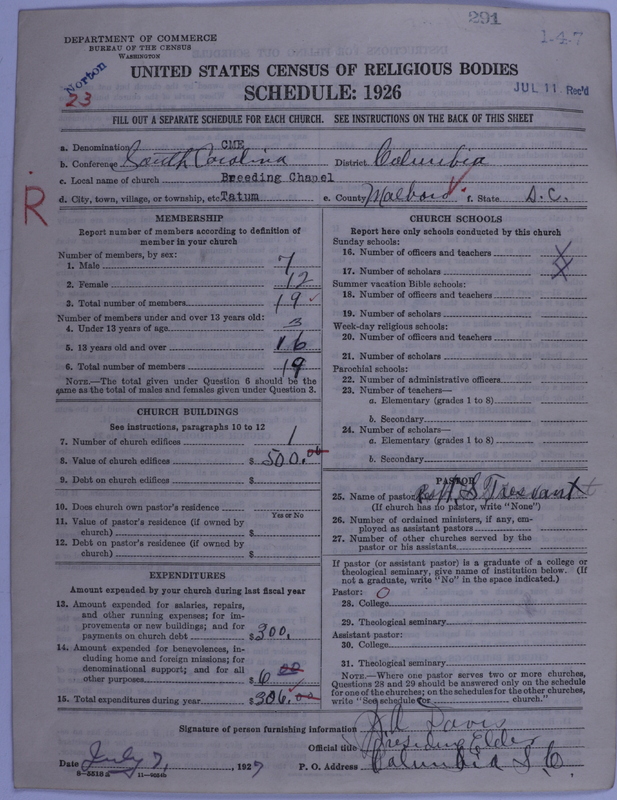 291
1-4-7
DEPARTMENT OF COMMERCE
BUREAU OF THE CENSUS
WASHINGTON
Norton
23
UNITED STATES CENSUS OF RELIGIOUS BODIES
SCHEDULE: 1926
JUL 11 Rec'd
FILL OUT A SEPARATE SCHEDULE FOR EACH CHURCH. SEE INSTRUCTIONS ON THE BACK OF THIS SHEET
a. Denomination CME
b. Conference South Carolina District Columbia
c. Local name of church Breeding Chapel
d. City, town, village, or township, etc. Tatum e. County Malboro f. State S.C.
R
MEMBERSHIP
Report number of members according to definition of
member in your church
Number of members, by sex:
1. Male 7
2. Female 12
3. Total number of members 19
Number of members under and over 13 years old:
4. Under 13 years of age 3
5. 13 years old and over 16
6. Total number of members 19
NOTE.—The total given under Question 6 should be the
same as the total of males and females given under Question 3.
CHURCH BUILDINGS
See instructions, paragraphs 10 to 12
7. Number of church edifices 1
8. Value of church edifices $ 500.00
9. Debt on church edifices $
10. Does church own pastor's residence
Yes or No
11. Value of pastor's residence (if owned by
church) $
12. Debt on pastor's residence (if owned by
church) $
EXPENDITURES
Amount expended by your church during last fiscal year
13. Amount expended for salaries, repairs,
and other running expenses; for im-
provements or new buildings; and for
payments on church debt $ 300.
14. Amount expended for benevolences, in-
cluding home and foreign missions; for
denominational support; and for all
other purposes $ 6 00
15. Total expenditures during year $ 306.00
CHURCH SCHOOLS
Report here only schools conducted by this church
Sunday schools:
16. Number of officers and teachers X
17. Number of scholars X
Summer vacation Bible schools:
18. Number of officers and teachers
19. Number of scholars
Week-day religious schools:
20. Number of officers and teachers
21. Number of scholars
Parochial schools:
22. Number of administrative officers
23. Number of teachers—
a. Elementary (grades 1 to 8)
b. Secondary
24. Number of scholars—
a. Elementary (grades 1 to 8)
b. Secondary
PASTOR
25. Name of pastor S. Tresvant
(If church has no pastor, write "None")
26. Number of ordained ministers, if any, em-
ployed as assistant pastors
27. Number of other churches served by the
pastor or his assistants
If pastor (or assistant pastor) is a graduate of a college or
theological seminary, give name of institution below. (If
not a graduate, write "No" in the space indicated.)
Pastor: O
28. College
29. Theological seminary
Assistant pastor:
30. College
31. Theological seminary
NOTE.—Where one pastor serves two or more churches,
Questions 28 and 29 should be answered only on the schedule
for one of the churches; on the schedules for the other churches,
write "See schedule for church."
Signature of person furnishing information Davis
Official title Presiding Elder
Date July 7, 1927 P. O. Address Columbia S.C.
8-5518a